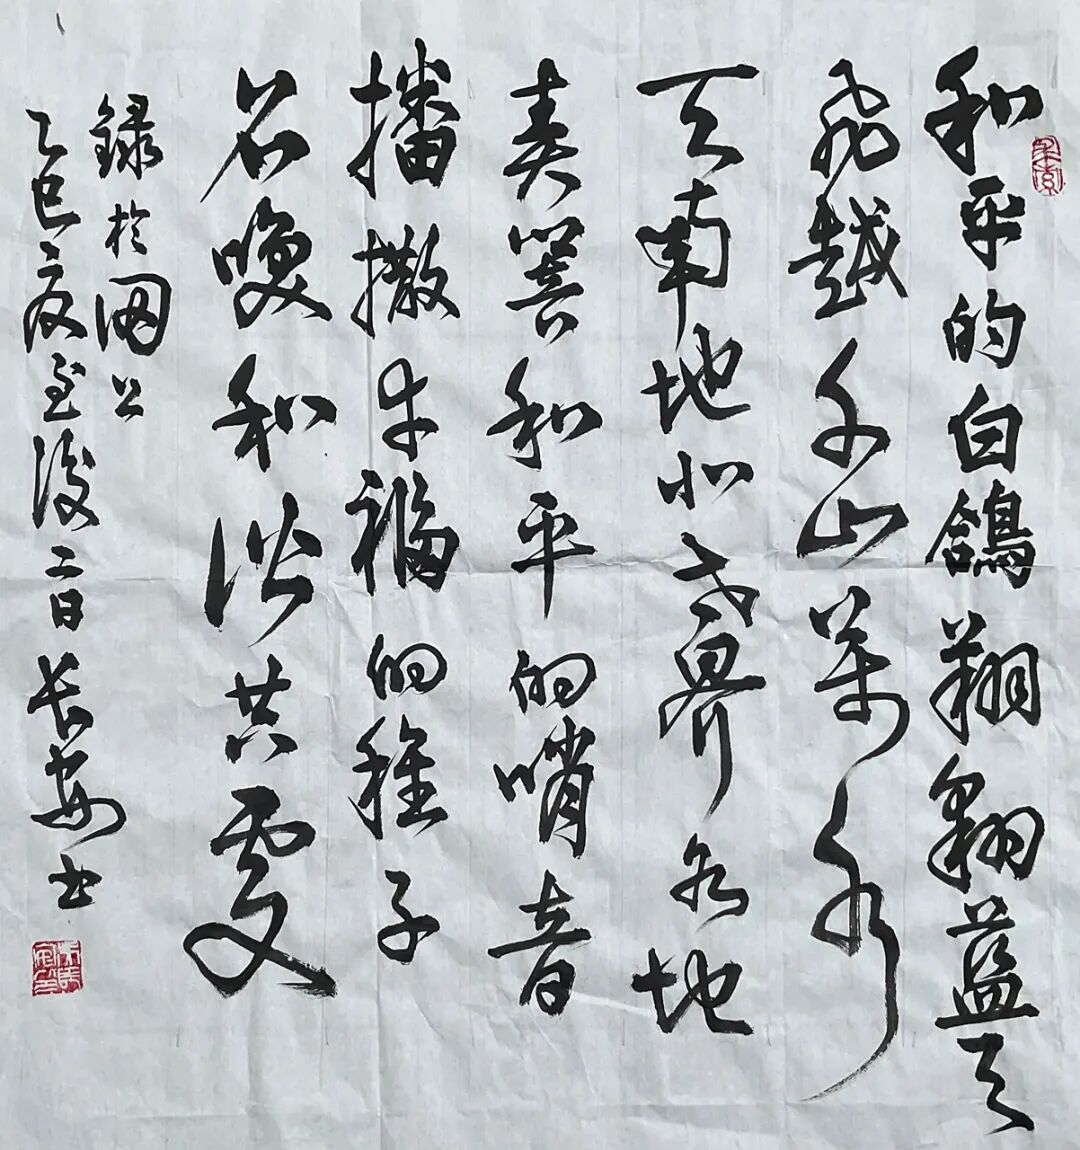 和平的白鴿翔翱蓝天
飛越千山萬水
天南地北世界各地
奏響和平的哨音
播撒幸福的種子
召唤和谐共處
録於网上
乙巳夏至後二日長安书